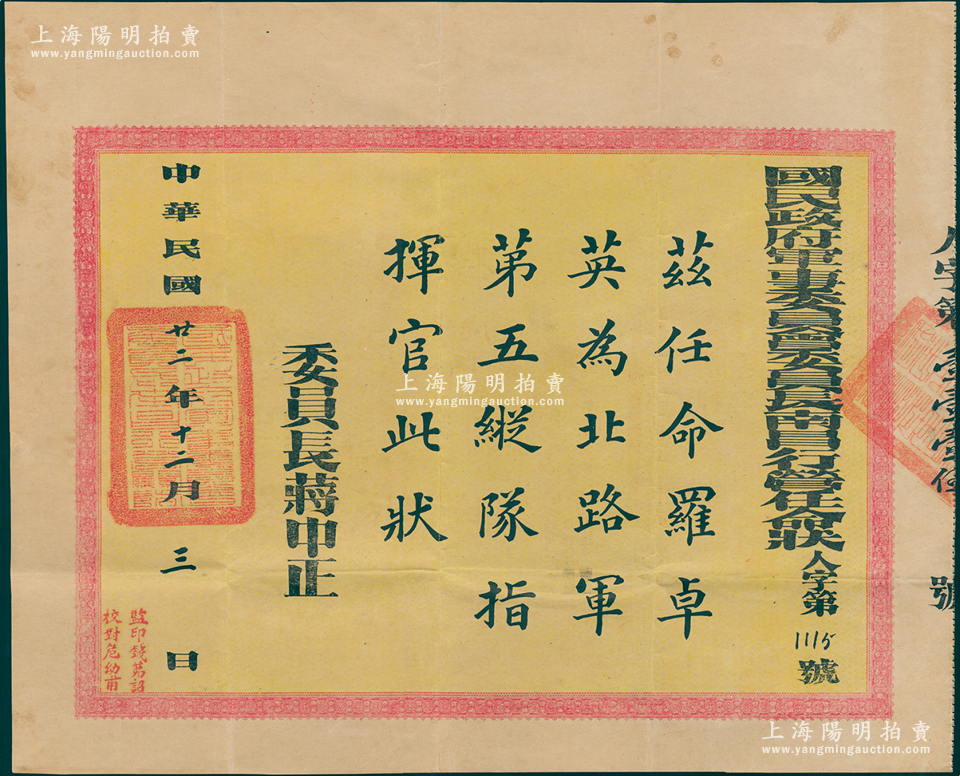 上海陽明拍賣
www.yangmingauction.com
國民政府軍事委員會委員長南昌行營任命狀 人字第1115號
茲任命羅卓
英為北路軍
第五縱隊指
揮官此狀
委員長蔣中正
中華民國廿二年十二月三日
監印錢萬詔
校對危幼甫
號
上海陽明拍賣
www.yangmingauction.com
上海陽明拍賣
www.yangmingauction.com